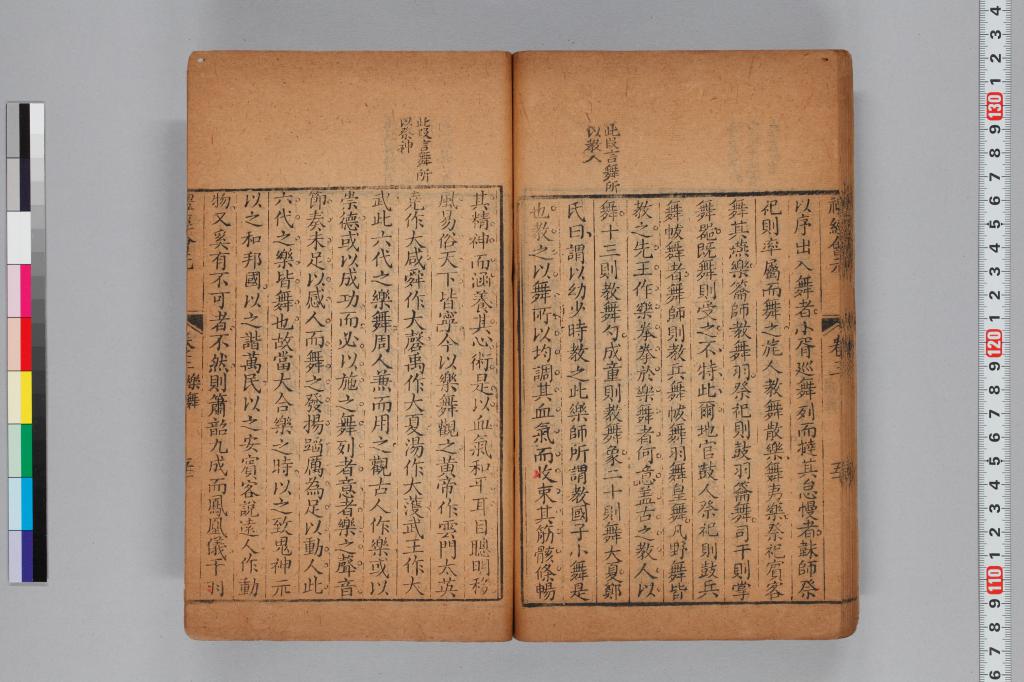 此段言舞所
以教人
以序出入舞者小胥巡舞列而撻其怠慢者韎師祭
祀則率屬而舞之旄人教舞散樂舞夷樂祭祀賓客
舞其燕樂籥師教舞羽祭祀則鼓羽籥舞司干則掌
舞器既舞則受之不特此爾地官鼓人祭祀則鼓兵
舞帗舞者舞師則教兵舞帗舞羽舞皇舞凡野舞皆
教之先王作樂拳拳於樂舞者何意蓋古之教人以
舞十三則教舞勺成童則教舞象二十則舞大夏鄭
氏曰謂以幼少時教之此樂師所謂教國子小舞是
也教之以舞所以均調其血氣而收束其筋骸條暢
此段言舞所
以祭神
其精神而涵養其心術足以血氣和平耳目聰明移
風易俗天下皆寧今以樂舞觀之黃帝作雲門太英
堯作大咸舜作大磬禹作大夏湯作大濩武王作大
武此六代之樂舞周人兼而用之觀古人作樂或以
崇德或以成功而必以施之舞列者意者樂之聲音
節奏未足以感人而舞之發揚蹈厲為足以動人此
六代之樂皆舞也故當大合樂之時以之致鬼神示
以之和邦國以之諧萬民以之安賓客說遠人作動
物又奚有不可者不然則簫韶九成而鳳凰儀干羽
卷三 樂舞